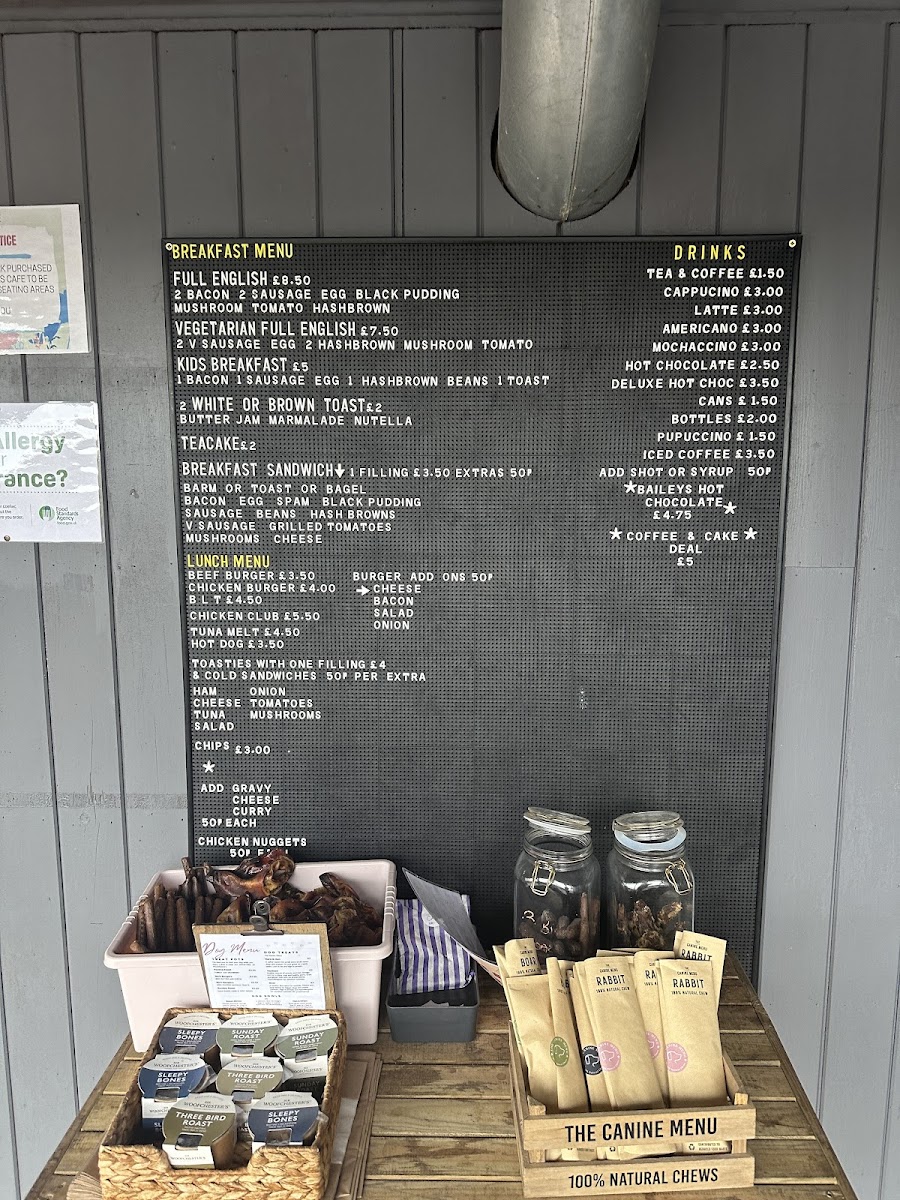 TICE
K PURCHASED
S CAFE TO BE
SEATING AREAS
OU
Allergy
or
rance?
Food
Standards
Agency
BREAKFAST MENU
FULL ENGLISH £8.50
2 BACON 2 SAUSAGE EGG BLACK PUDDING
MUSHROOM TOMATO HASHBROWN
VEGETARIAN FULL ENGLISH £7.50
2 V SAUSAGE EGG 2 HASHBROWN MUSHROOM TOMATO
KIDS BREAKFAST £5
1 BACON 1 SAUSAGE EGG 1 HASHBROWN BEANS 1 TOAST
2 WHITE OR BROWN TOAST £2
BUTTER JAM MARMALADE NUTELLA
TEACAKE £2
BREAKFAST SANDWICH ↓ 1 FILLING £3.50 EXTRAS 50P
BARM OR TOAST OR BAGEL
BACON EGG SPAM BLACK PUDDING
SAUSAGE BEANS HASH BROWNS
V SAUSAGE GRILLED TOMATOES
MUSHROOMS CHEESE
LUNCH MENU
BEEF BURGER £3.50
CHICKEN BURGER £4.00
B L T £4.50
CHICKEN CLUB £5.50
TUNA MELT £4.50
HOT DOG £3.50
BURGER ADD ONS 50P
→ CHEESE
BACON
SALAD
ONION
TOASTIES WITH ONE FILLING £4
& COLD SANDWICHES 50P PER EXTRA
HAM ONION
CHEESE TOMATOES
TUNA MUSHROOMS
SALAD
CHIPS £3.00
★
ADD GRAVY
CHEESE
CURRY
50P EACH
CHICKEN NUGGETS
50P EACH
DRINKS
TEA & COFFEE £1.50
CAPPUCINO £3.00
LATTE £3.00
AMERICANO £3.00
MOCHACCINO £3.00
HOT CHOCOLATE £2.50
DELUXE HOT CHOC £3.50
CANS £ 1.50
BOTTLES £2.00
PUPUCCINO £ 1.50
ICED COFFEE £3.50
ADD SHOT OR SYRUP 50P
★BAILEYS HOT
CHOCOLATE★
£4.75
★ COFFEE & CAKE ★
DEAL
£5
Dog Menu
DOG TREATS
SLEEPY
BONES
SUNDAY
ROAST
SUNDAY
ROAST
SLEEPY
BONES
THREE BIRD
ROAST
WOOFCHESTER'S
THREE BIRD
ROAST
SLEEPY
BONES
THE
CANINE MENU
RABBIT
100% NATURAL CHEW
THE
CANINE MENU
RABBIT
100% NATURAL CHEW
THE CANINE MENU
100% NATURAL CHEWS